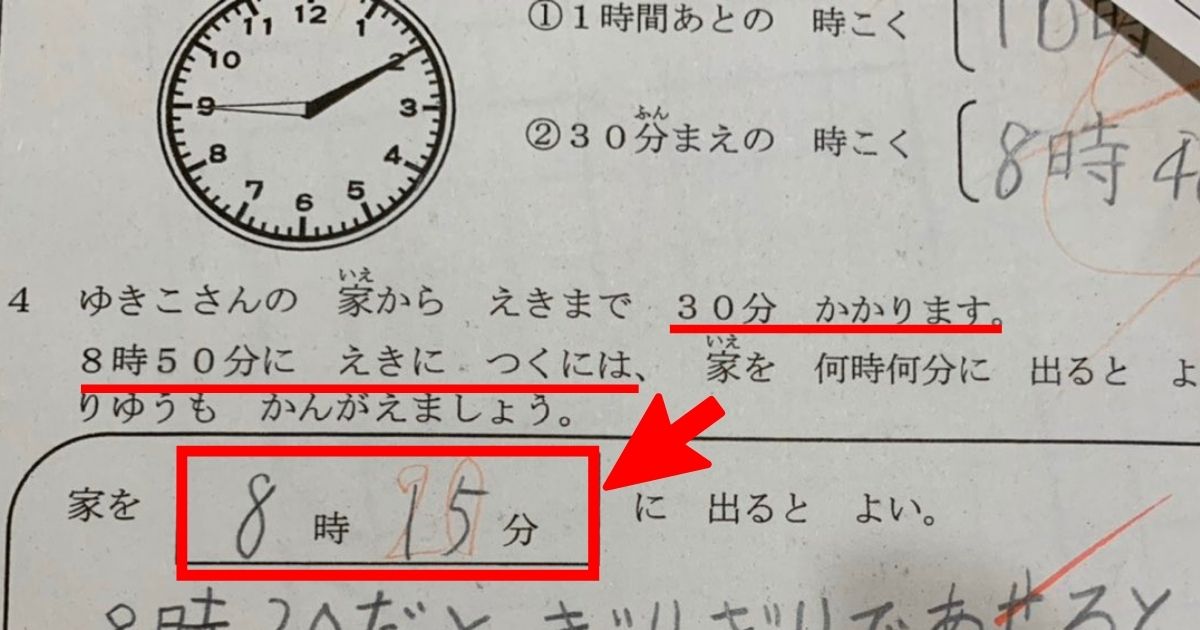 12
11
1
10
2
9
3
8
4
7
5
6
①１時間あとの　時こく
10時
ふん
②３０分まえの　時こく
8時4
いえ
４　ゆきこさんの　家から　えきまで　３０分　かかります。
いえ
８時５０分に　えきに　つくには、　家を　何時何分に　出ると　よ
りゆうも　かんがえましょう。
家を　8時15分に　出ると　よい。
20
8時20だと ぎりぎりであせると